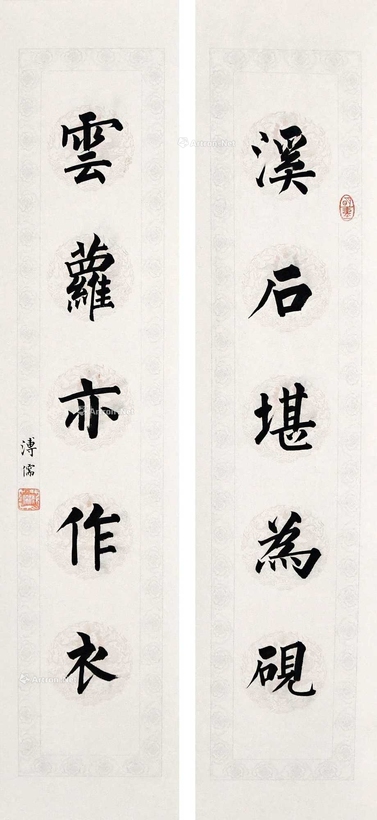 溪石堪為硯
雲蘿亦作衣
溥儒